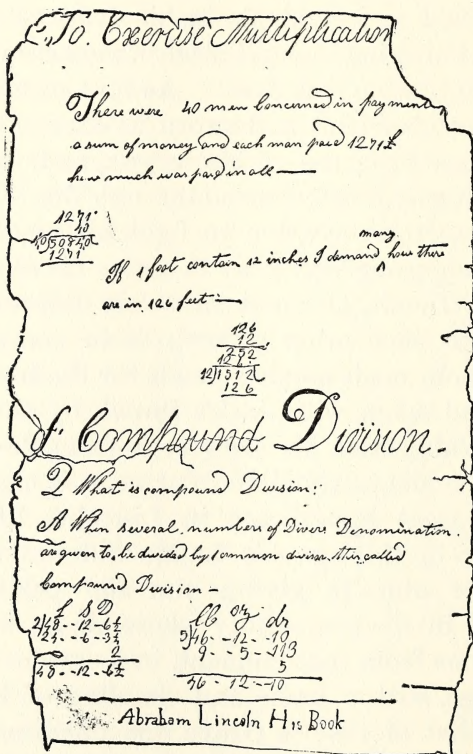 To. Exercise Multiplication
There were 40 men Concerned in payment
a sum of money and each man paid 1271£
how much was paid in all —
1271
40
40)50840(
1271
many
If 1 foot contain 12 inches I demand ^ how there
are in 126 feet —
126
12
252
126
12)1512(
126
of Compound Division -
Q What is compound Division:
A When several numbers of Divers Denomination.
are given to be divided by 1 common divisor this called
Compound Division -
£ S D
2)48--12-6½
24--6-3¼
2
48--12-6½
lb oz dr
5)46--12-10
9--5-113
5
46--12--10
Abraham Lincoln His Book